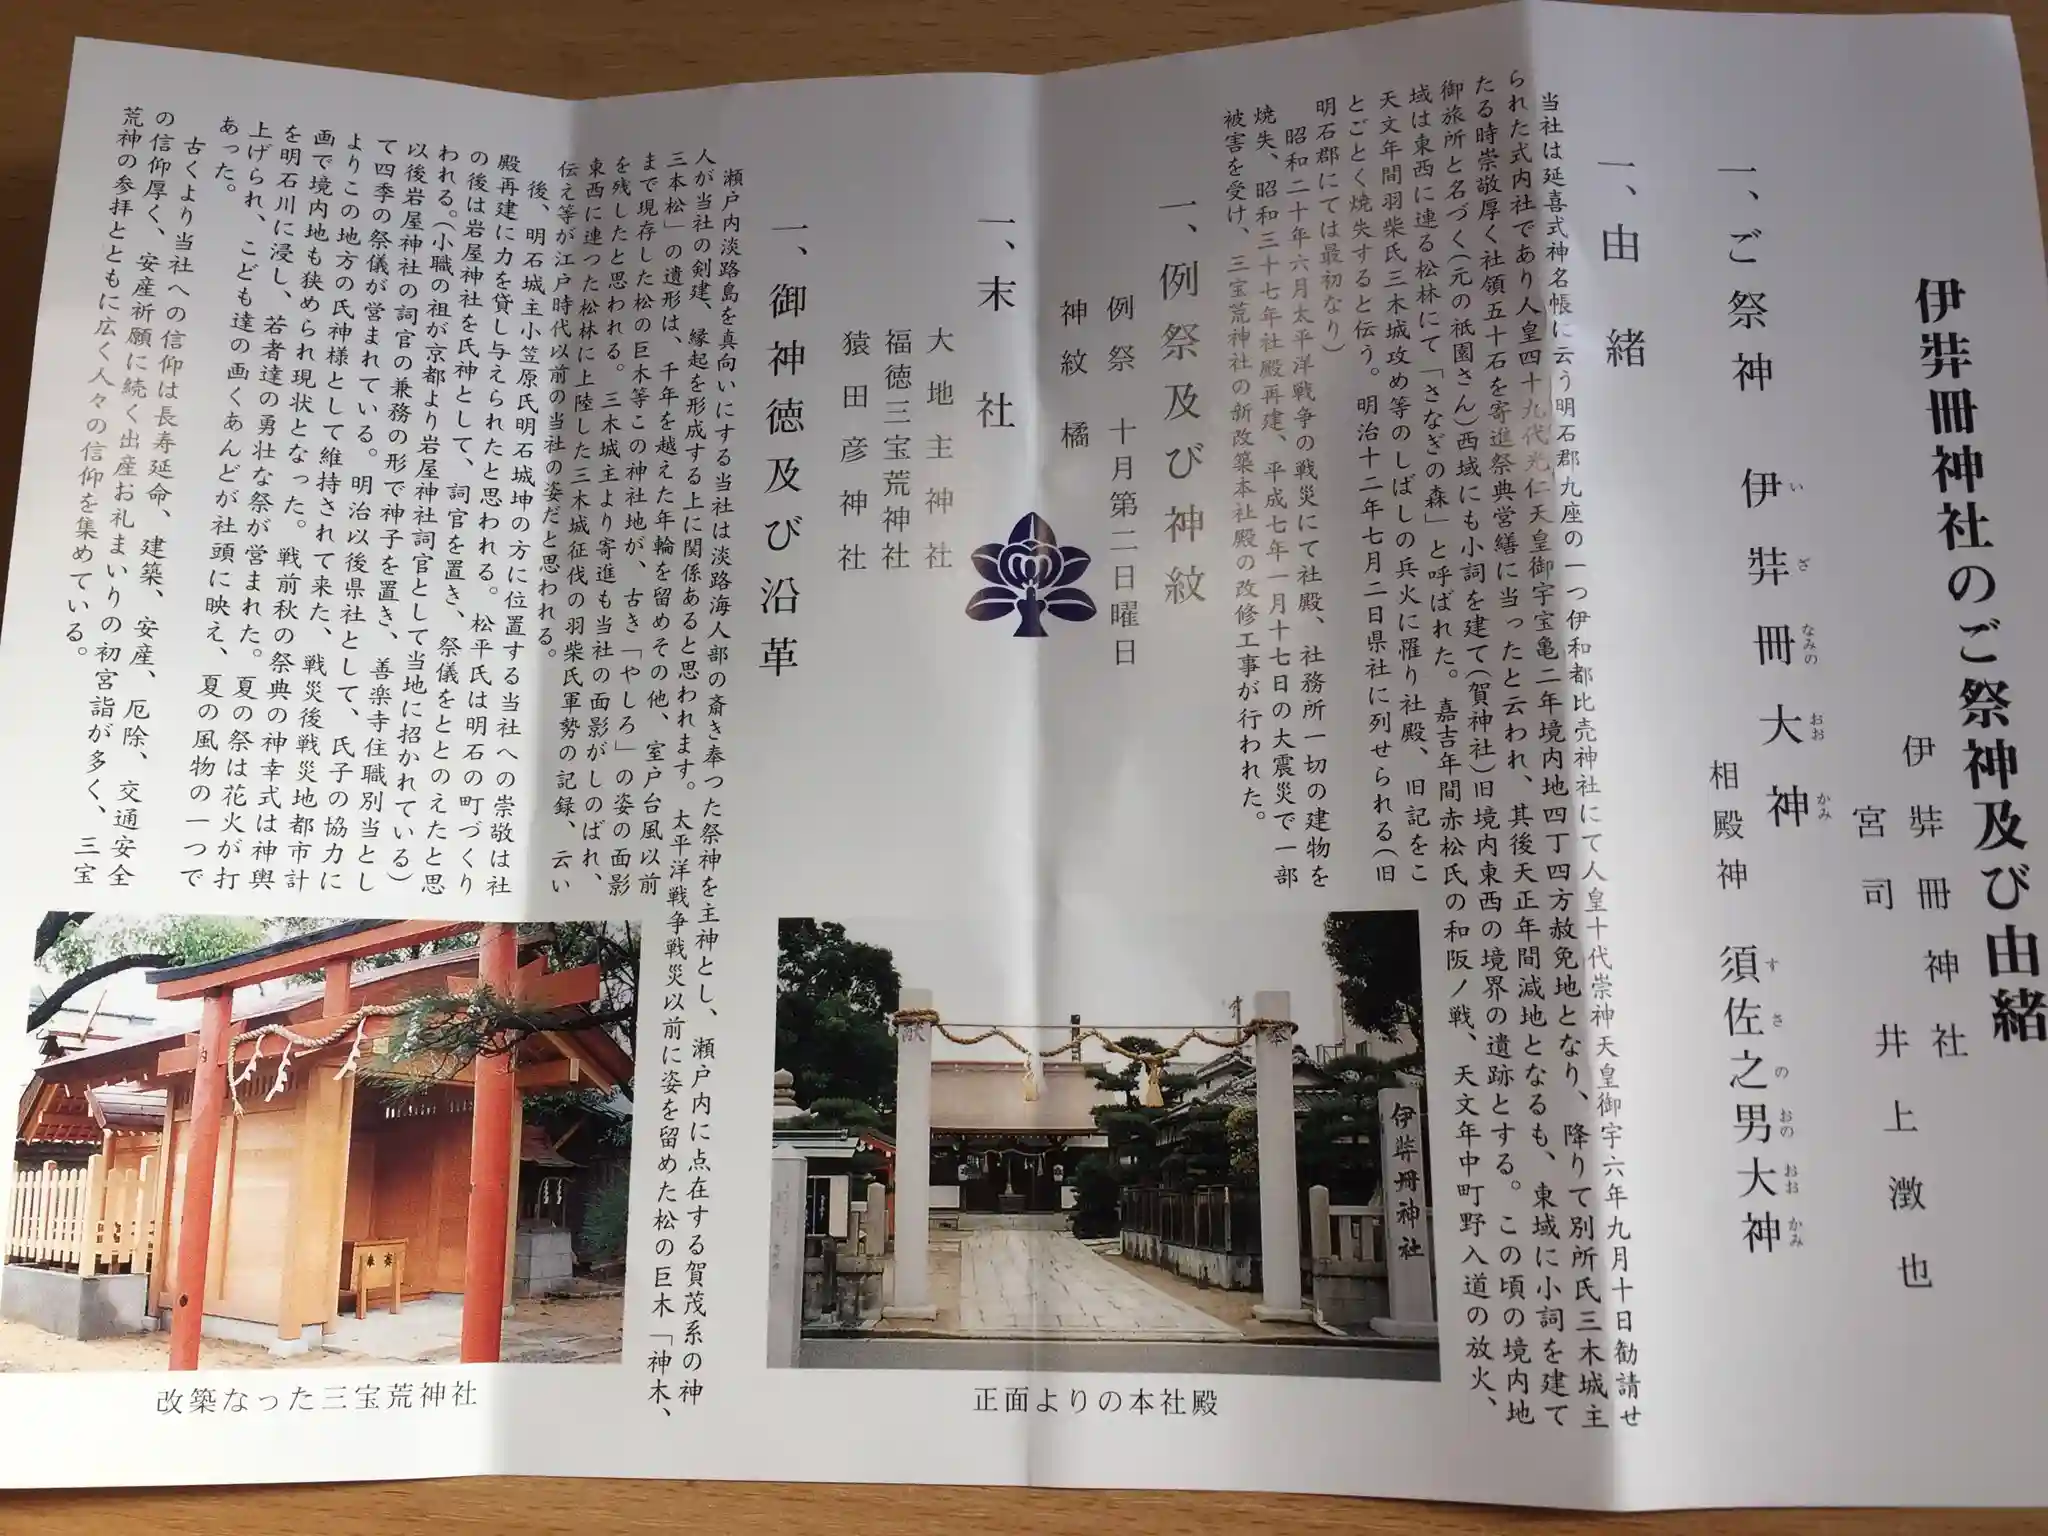 伊弉冊神社のご祭神及び由緒
伊弉冊神社
宮司 井上澂也
一、ご祭神 伊弉冊大神
いざなみのおおかみ
相殿神 須佐之男大神
すさのおのおおかみ
一、由緒
当社は延喜式神名帳に云う明石郡九座の一つ伊和都比売神社にて人皇十代崇神天皇御宇六年九月十日勧請せ
られた式内社であり人皇四十九代光仁天皇御宇宝亀二年境内地四丁四方赦免地となり、降りて別所氏三木城主
たる時崇敬厚く社領五十石を寄進祭典営繕に当ったと云われ、其後天正年間減地となるも、東域に小詞を建て
御旅所と名づく(元の祇園さん)西域にも小詞を建て(賀神社)旧境内東西の境界の遺跡とする。この頃の境内地
域は東西に連る松林にて「さなぎの森」と呼ばれた。嘉吉年間赤松氏の和阪ノ戦、天文年中町野入道の放火、
天文年間羽柴氏三木城攻め等のしばしの兵火に罹り社殿、旧記をこ
とごとく焼失すると伝う。明治十二年七月二日県社に列せられる(旧
明石郡にては最初なり)
昭和二十年六月太平洋戦争の戦災にて社殿、社務所一切の建物を
焼失、昭和三十七年社殿再建、平成七年一月十七日の大震災で一部
被害を受け、三宝荒神社の新改築本社殿の改修工事が行われた。
一、例祭及び神紋
例祭 十月第二日曜日
神紋 橘
一、末社
大地主神社
福徳三宝荒神社
猿田彦神社
一、御神徳及び沿革
瀬戸内淡路島を真向いにする当社は淡路海人部の斎き奉った祭神を主神とし、瀬戸内に点在する賀茂系の神
人が当社の剣建、縁起を形成する上に関係あると思われます。太平洋戦争戦災以前に姿を留めた松の巨木「神木、
三本松」の遺形は、千年を越えた年輪を留めその他、室戸台風以前
まで現存した松の巨木等この神社地が、古き「やしろ」の姿の面影
を残したと思われる。三木城主より寄進も当社の面影がしのばれ、
東西に連った松林に上陸した三木城征伐の羽柴氏軍勢の記録、云い
伝え等が江戸時代以前の当社の姿だと思われる。
後、明石城主小笠原氏明石城坤の方に位置する当社への崇敬は社
殿再建に力を貸し与えられたと思われる。松平氏は明石の町づくり
の後は岩屋神社を氏神として、詞官を置き、祭儀をととのえたと思
われる。(小職の祖が京都より岩屋神社詞官として当地に招かれている)
以後岩屋神社の詞官の兼務の形で神子を置き、善楽寺住職別当とし
て四季の祭儀が営まれている。明治以後県社として、氏子の協力に
よりこの地方の氏神様として維持されて来た、戦災後戦災地都市計
画で境内地も狭められ現状となった。戦前秋の祭典の神幸式は神輿
を明石川に浸し、若者達の勇壮な祭が営まれた。夏の祭は花火が打
上げられ、こども達の画くあんどが社頭に映え、夏の風物の一つで
あった。
古くより当社への信仰は長寿延命、建築、安産、厄除、交通安全
の信仰厚く、安産祈願に続く出産お礼まいりの初宮詣が多く、三宝
荒神の参拝とともに広く人々の信仰を集めている。
献
奉
伊弉冊神社
正面よりの本社殿
改築なった三宝荒神社